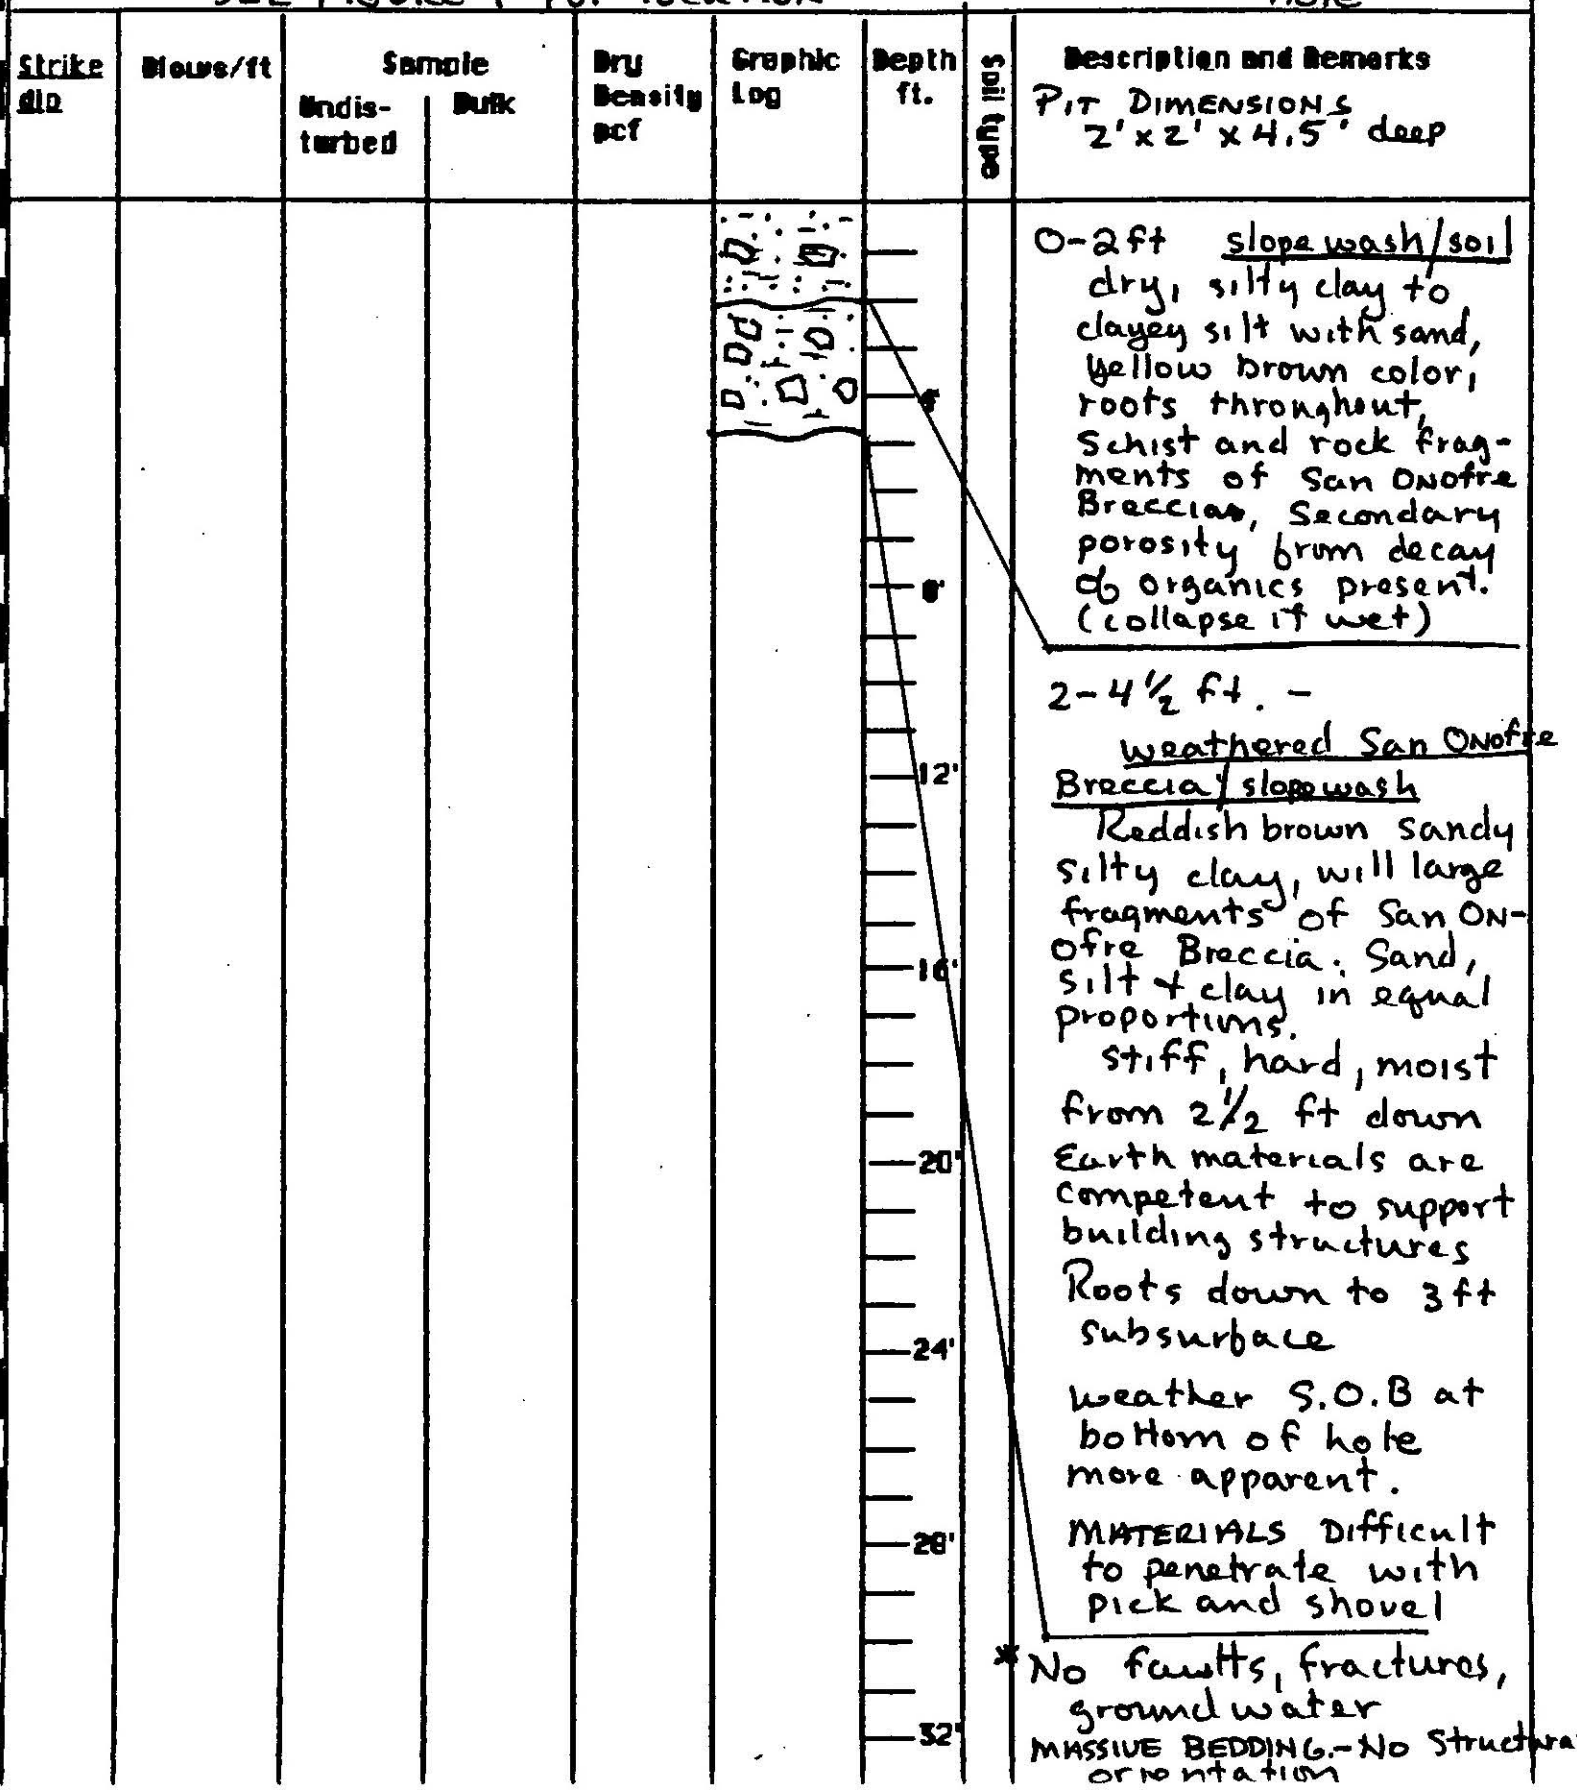 See Figure 1 for location
Hole
Strike
dip
Blows/ft
Sample
Undis-
turbed
Bulk
Dry
Density
pcf
Graphic
Log
Depth
ft.
Soil type
Description and Remarks
PIT DIMENSIONS
2' x 2' x 4.5' deep
0-2ft slope wash/soil
dry, silty clay to
clayey silt with sand,
yellow brown color,
roots throughout,
Schist and rock frag-
ments of San Onofre
Breccia, Secondary
porosity from decay
of organics present.
(collapse if wet)
2-4 1/2 ft. -
weathered San Onofre
Breccia/slopewash
Reddish brown sandy
silty clay, will large
fragments of San On-
ofre Breccia. Sand,
silt + clay in equal
proportions.
stiff, hard, moist
from 2 1/2 ft down
Earth materials are
competent to support
building structures
Roots down to 3 ft
subsurface
weather S.O.B at
bottom of hole
more apparent.
MATERIALS Difficult
to penetrate with
pick and shovel
* No faults, fractures,
ground water
MASSIVE BEDDING.-No Structura
orientation
4'
8'
12'
16'
20'
24'
28'
32'